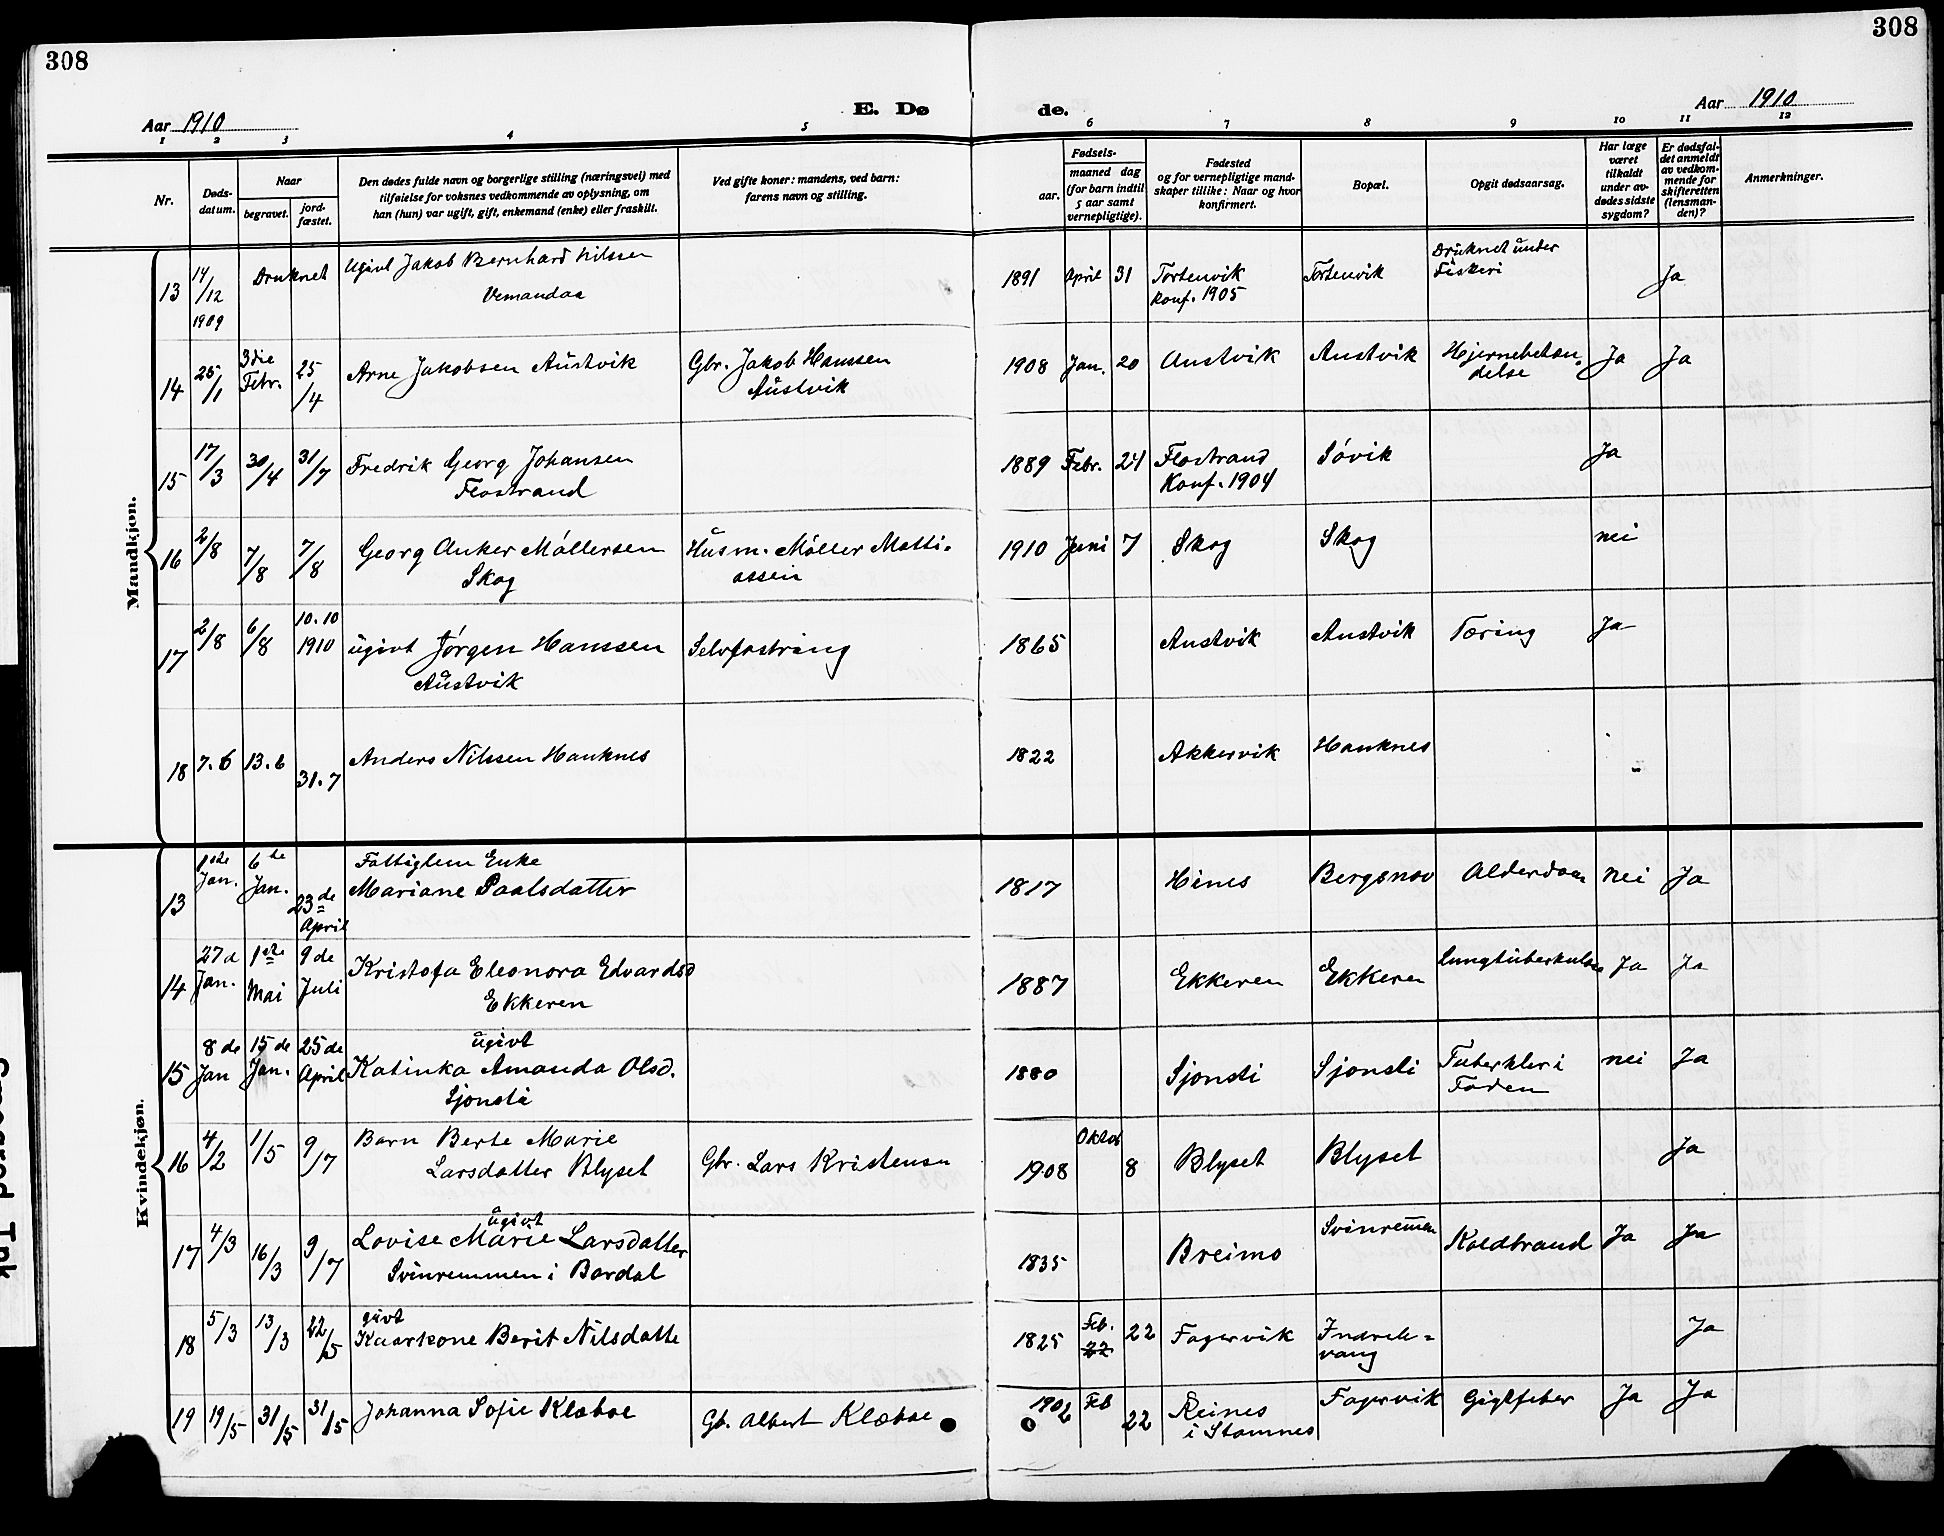 308
308
Aar 1910
E. Dø
de.
Aar 1910
1 2 3 4 5 6 7 8 9 10 11 12
Nr.
Døds-
datum.
Naar
begravet.
jord-
fæstet.
Den dødes fulde navn og borgerlige stilling (næringsvei) med
tilføielse for voksnes vedkommende av oplysning, om
han (hun) var ugift, gift, enkemand (enke) eller fraskilt.
Ved gifte koner: mandens, ved barn:
farens navn og stilling.
Fødsels-
aar.
maaned dag
(for barn indtil
5 aar samt
vernepligtige).
Fødested
og for vernepligtige mand-
skaper tillike: Naar og hvor
konfirmert.
Bopæl.
Opgit dødsaarsag.
Har læge
været
tilkaldt
under av-
dødes sidste
sygdom?
Er dødsfal-
det anmeldt
av vedkom-
mende for
skifteretten
(lensman-
den)?
Anmerkninger.
Mandkjøn.
13 14/12 1909 Druknet Ugivt Jakob Bernhard Nilssen
Vemandaa
1891 April 31 Tortenvik
Konf. 1905
Tortenvik
Druknet under
Fiskeri
Ja
14 25/1 3die
Febr. 25/4 Arne Jakobsen Austvik
Gbr. Jakob Hanssen
Austvik
1908 Jan. 20 Austvik Austvik Hjernebetæn-
delse
Ja Ja
15 17/3 30/4 31/7 Fredrik Georg Johansen
Flostrand
1889 Febr. 24 Flostrand
Konf. 1904
Søvik Ja
16 2/8 7/8 7/8 Georg Anker Møllersen
Skog
Husm. Møller Matti-
assen
1910 Juni 7 Skog Skog nei
17 2/8 6/8 10.10
1910
ugivt Jørgen Hanssen
Austvik
Selvfostring
1865 Austvik Austvik Tæring Ja
18 7.6 13.6 31.7 Anders Nilssen Hauknes
1822 Akkervik Hauknes
Kvindekjøn.
13 1ste
Jan. 6te
Jan. 23de
April
Fattiglem Enke
Mariane Paalsdatter
1817 Hines Bergsnov Alderdom nei Ja
14 27d
Jan. 1ste
Mai 9de
Juli
Kristofa Eleonora Edvardsd
Ekkeren
1887 Ekkeren Ekkeren Lungtuberkulose Ja Ja
15 8de
Jan 15de
Jan. 25de
April
ugivt
Katinka Amanda Olsd.
Sjonsti
1880 Sjonsti Sjonsti Tuberkler i
Foden
nei Ja
16 4/2 1/5 9/7 Barn Berte Marie
Larsdatter Blyset
Gbr. Lars Kristensen
1908 Oktob 8 Blyset Blyset Ja
17 4/3 16/3 9/7 ugivt
Lovise Marie Larsdatter
Svinremmen i Bardal
1835 Breimo Svinremmen Koldbrand Ja Ja
18 5/3 13/3 22/5 givt
Kaarkone Berit Nilsdatte
1825 Feb.
22 22 Fagervik Indrele-
vang
Ja
19 19/5 31/5 31/5 Johanna Sofie Klæboe
Gb. Albert Klæboe
1902 Feb 22 Reines
i Stamnes
Fagervik Giglfeber Ja Ja